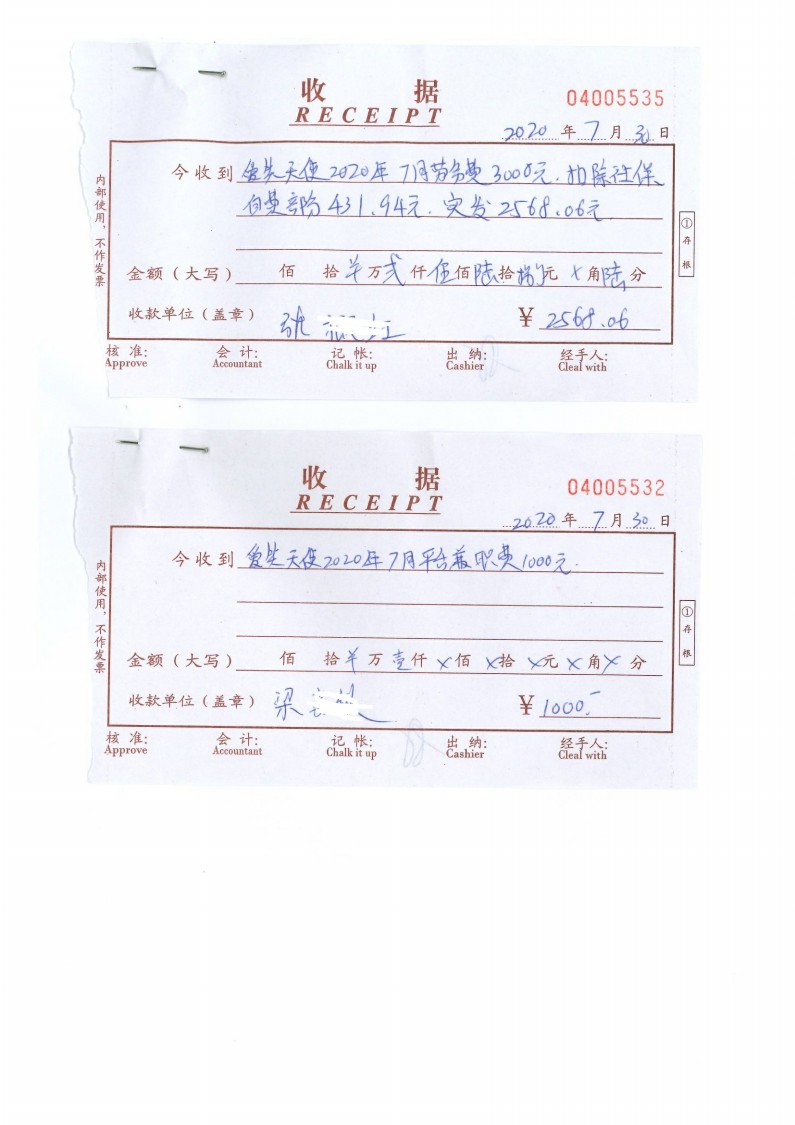 收 据
RECEIPT
04005535
2020 年 7 月 30 日
今收到 爱笑天使2020年7月劳务费3000元.扣除社保
自费部分431.94元.实发2568.06元
金额（大写） 佰 拾 羊万 贰仟 伍佰 陆拾 捌元 × 角 陆分
收款单位（盖章） 张
¥ 2568.06
核 准: 会 计: 记 帐: 出 纳: 经手人:
Approve Accountant Chalk it up Cashier Cleal with
内部使用，不作发票
①存根
收 据
RECEIPT
04005532
2020 年 7 月 30 日
今收到 爱笑天使2020年7月平台兼职费1000元.
金额（大写） 佰 拾 羊万 壹仟 ×佰 ×拾 ×元 ×角 × 分
收款单位（盖章） 梁
¥ 1000.-
核 准: 会 计: 记 帐: 出 纳: 经手人:
Approve Accountant Chalk it up Cashier Cleal with
内部使用，不作发票
①存根